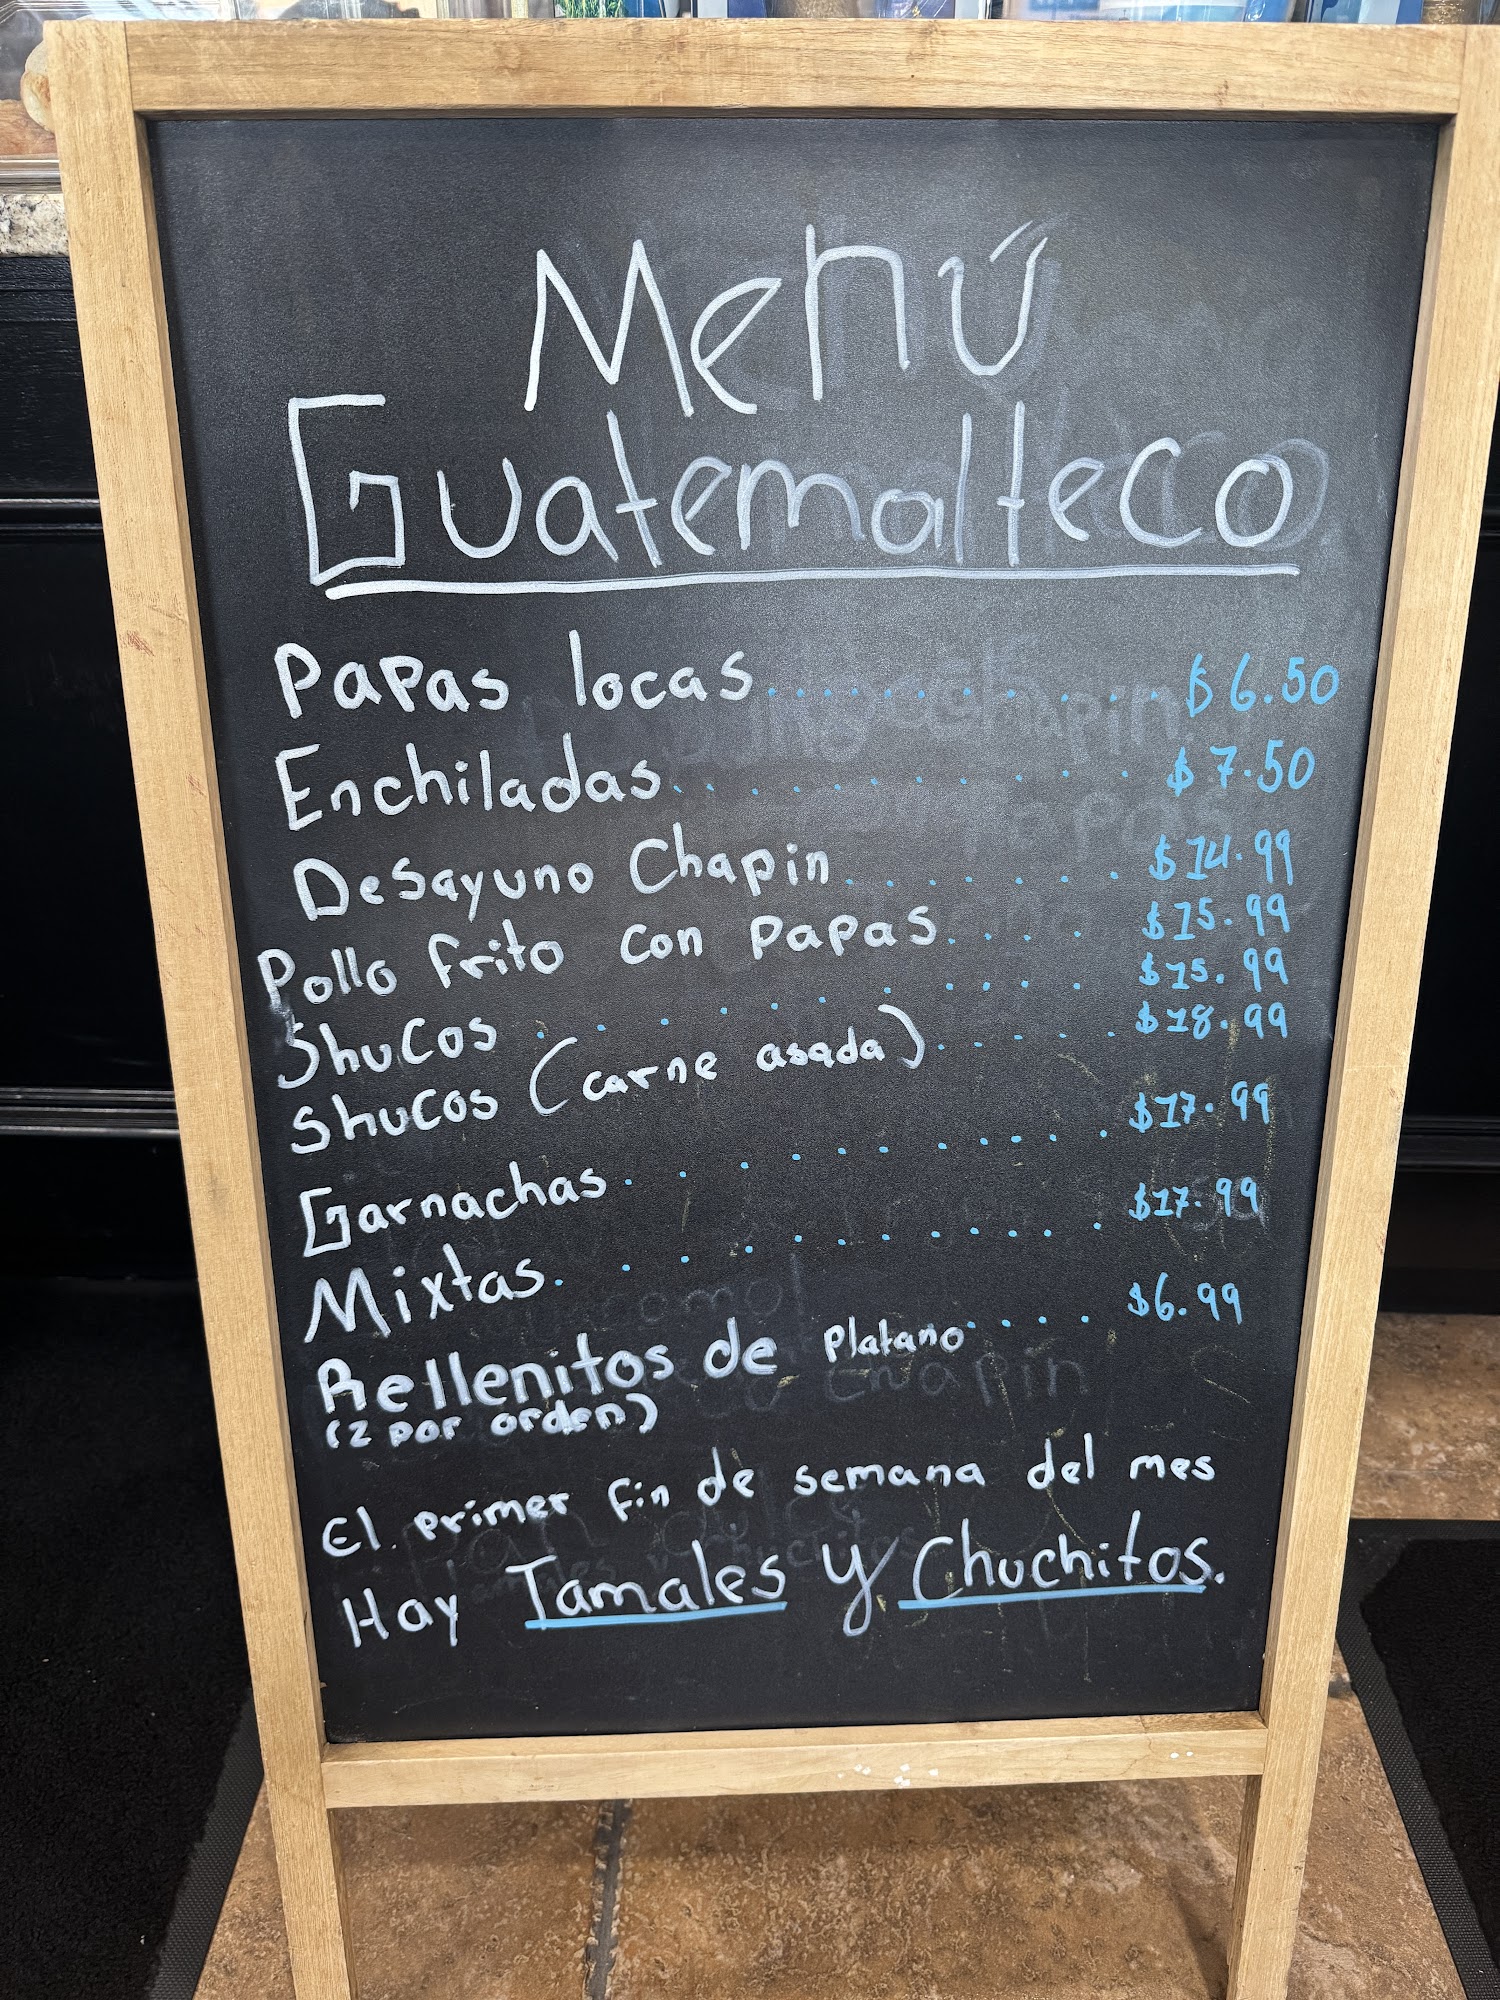 Menú
Guatemalteco
Papas locas.............. $6.50
Enchiladas......... $7.50
Desayuno Chapin....... $14.99
Pollo frito con papas.... $15.99
Shucos.......... $15.99
Shucos (carne asada).... $18.99
Garnachas.......... $17.99
Mixtas........... $17.99
Rellenitos de platano..... $6.99
(2 por orden)
El primer fin de semana del mes
Hay Tamales y Chuchitos.